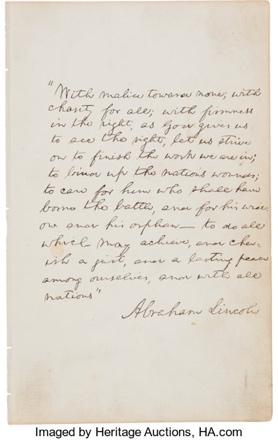 "With malice toward none; with
charity for all; with firmness
in the right, as God gives us
to see the right, let us strive
on to finish the work we are in;
to bind up the nations wounds;
to care for him who shall have
borne the battle, and for his wid-
ow and his orphan — to do all
which may achieve, and cher-
ish a just, and a lasting peace
among ourselves, and with all
nations"
Abraham Lincoln
Imaged by Heritage Auctions, HA.com